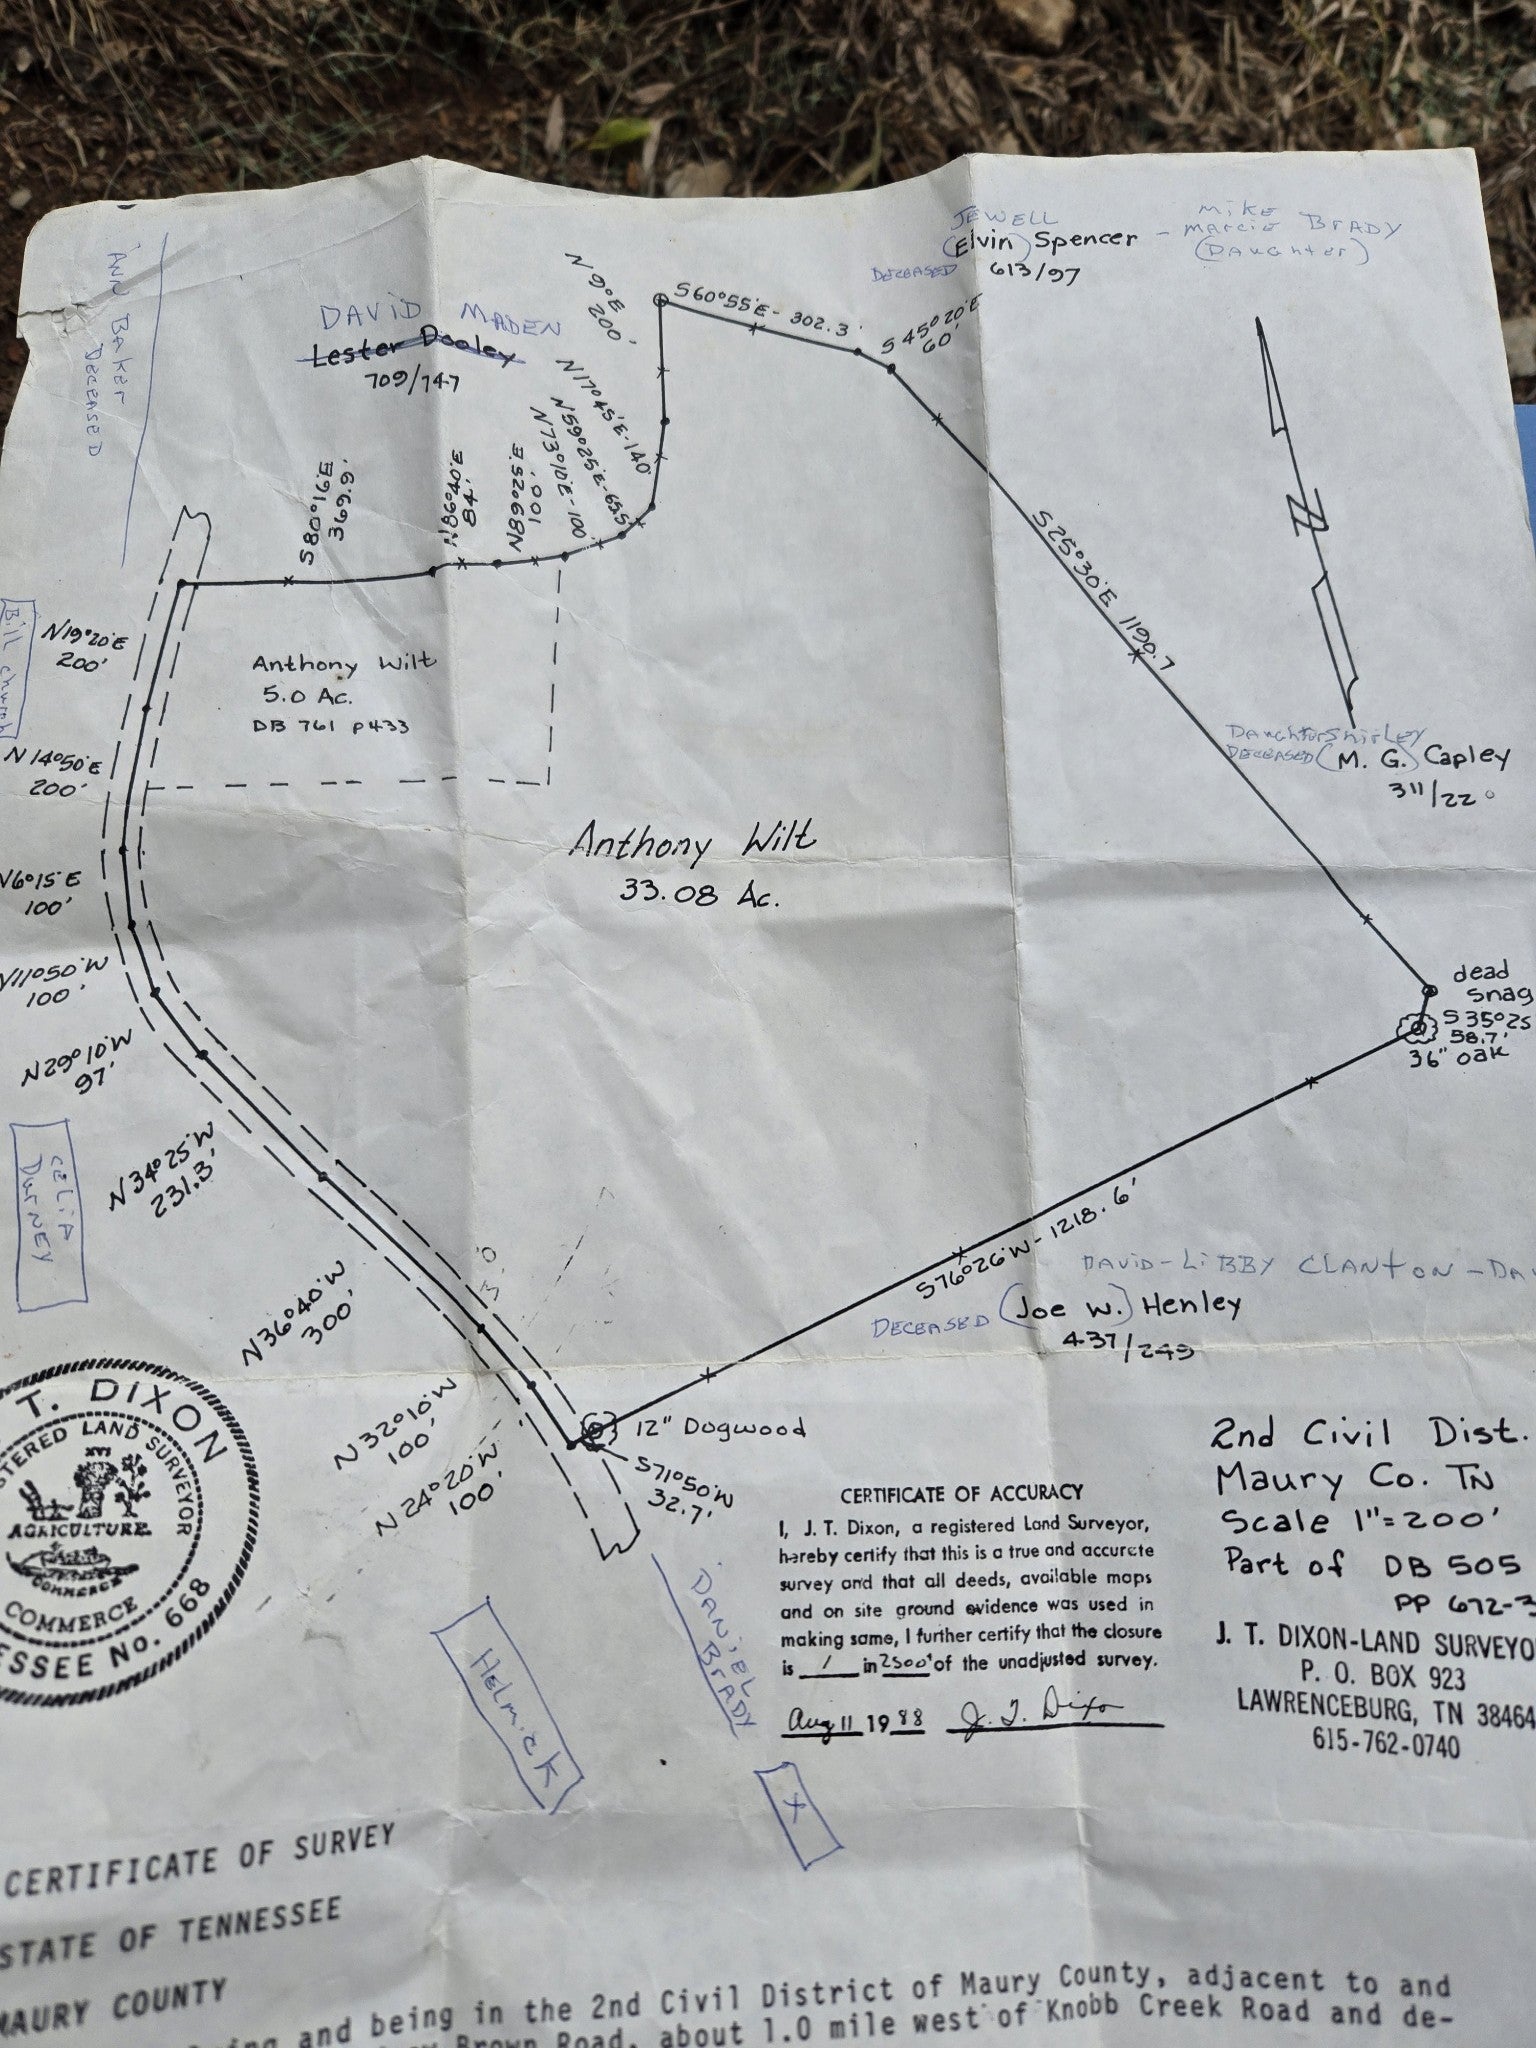 JEWELL
(Elvin) Spencer -
DECEASED 613/97
MIKE
MARCIE BRADY
(DAUGHTER)
ANN BAKER
DECEASED
DAVID MADEN
Lester Dooley
709/747
N9°E
200'
S60°55'E - 302.3'
S45°20'E
60'
N17°45'E-140'
N59°25'E-65.5'
N73°10'E-100'
N89°25'E
100'
N86°40'E
84'
S80°16'E
369.9'
S25°30'E 1190.7
Bill church
N19°20'E
200'
Anthony Wilt
5.0 Ac.
DB 761 P433
N14°50'E
200'
DAUGHTER SHIRLEY
DECEASED (M. G.) Capley
311/22
Anthony Wilt
33.08 Ac.
N6°15'E
100'
N11°50'W
100'
dead
snag
S35°25
58.7'
36" oak
N29°10'W
97'
CELIA
DURNEY
N34°25'W
231.3'
S76°26'W - 1218.6'
DAVID-LIBBY CLANTON -DA
DECEASED (Joe W.) Henley
437/249
N36°40'W
300'
T. DIXON
STERED LAND SURVEYOR
XVI
AGRICULTURE
COMMERCE
COMMERCE
ESSEE No. 668
N32°10'W
100'
N24°20'W
100'
12" Dogwood
S71°50'W
32.7'
2nd Civil Dist.
Maury Co. TN
Scale 1"=200'
Part of DB 505
PP 672-3
J. T. DIXON-LAND SURVEYO
P. O. BOX 923
LAWRENCEBURG, TN 38464
615-762-0740
CERTIFICATE OF ACCURACY
I, J. T. Dixon, a registered Land Surveyor,
hereby certify that this is a true and accurate
survey and that all deeds, available maps
and on site ground evidence was used in
making same, I further certify that the closure
is 1 in 2500' of the unadjusted survey.
Aug 11 1988 J. T. Dixon
HELMICK
DANIEL
BRADY
X
CERTIFICATE OF SURVEY
STATE OF TENNESSEE
MAURY COUNTY
and being in the 2nd Civil District of Maury County, adjacent to and
Brown Road, about 1.0 mile west of Knobb Creek Road and de-